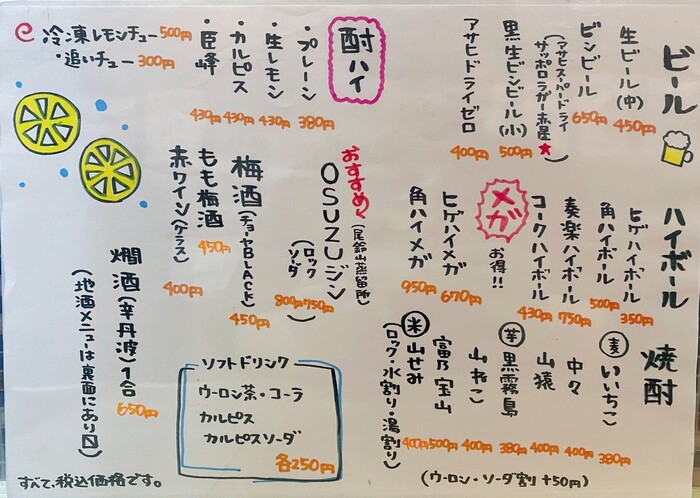 ビール
生ビール(中) 450円
ビンビール 650円
(アサヒスーパードライ
サッポロラガー赤星★)
黒生ビンビール(小) 500円
アサヒドライゼロ 400円
酎ハイ
・プレーン 380円
・生レモン 430円
・カルピス 430円
・巨峰 430円
冷凍レモンチュー 500円
・追いチュー 300円
ハイボール
ヒゲハイボール 350円
角ハイボール 500円
奏楽ハイボール 750円
コークハイボール 430円
メガ
お得!!
ヒゲハイメガ 670円
角ハイメガ 950円
おすすめ
OSUZUジン
(尾鈴山蒸留所)
(ロック 750円
ソーダ 800円)
梅酒(チョーヤBLACK) 450円
もも梅酒 450円
赤ワイン(グラス) 400円
燗酒(辛丹波)1合 650円
(地酒メニューは裏面にあり〼)
焼酎
麦 いいちこ 380円
中々 400円
山猿 400円
芋 黒霧島 380円
山ねこ 400円
富乃宝山 500円
米 山せみ 400円
(ロック・水割り・湯割り)
(ウーロン・ソーダ割+50円)
ソフトドリンク
ウーロン茶・コーラ
カルピス
カルピスソーダ
各250円
すべて、税込価格です。